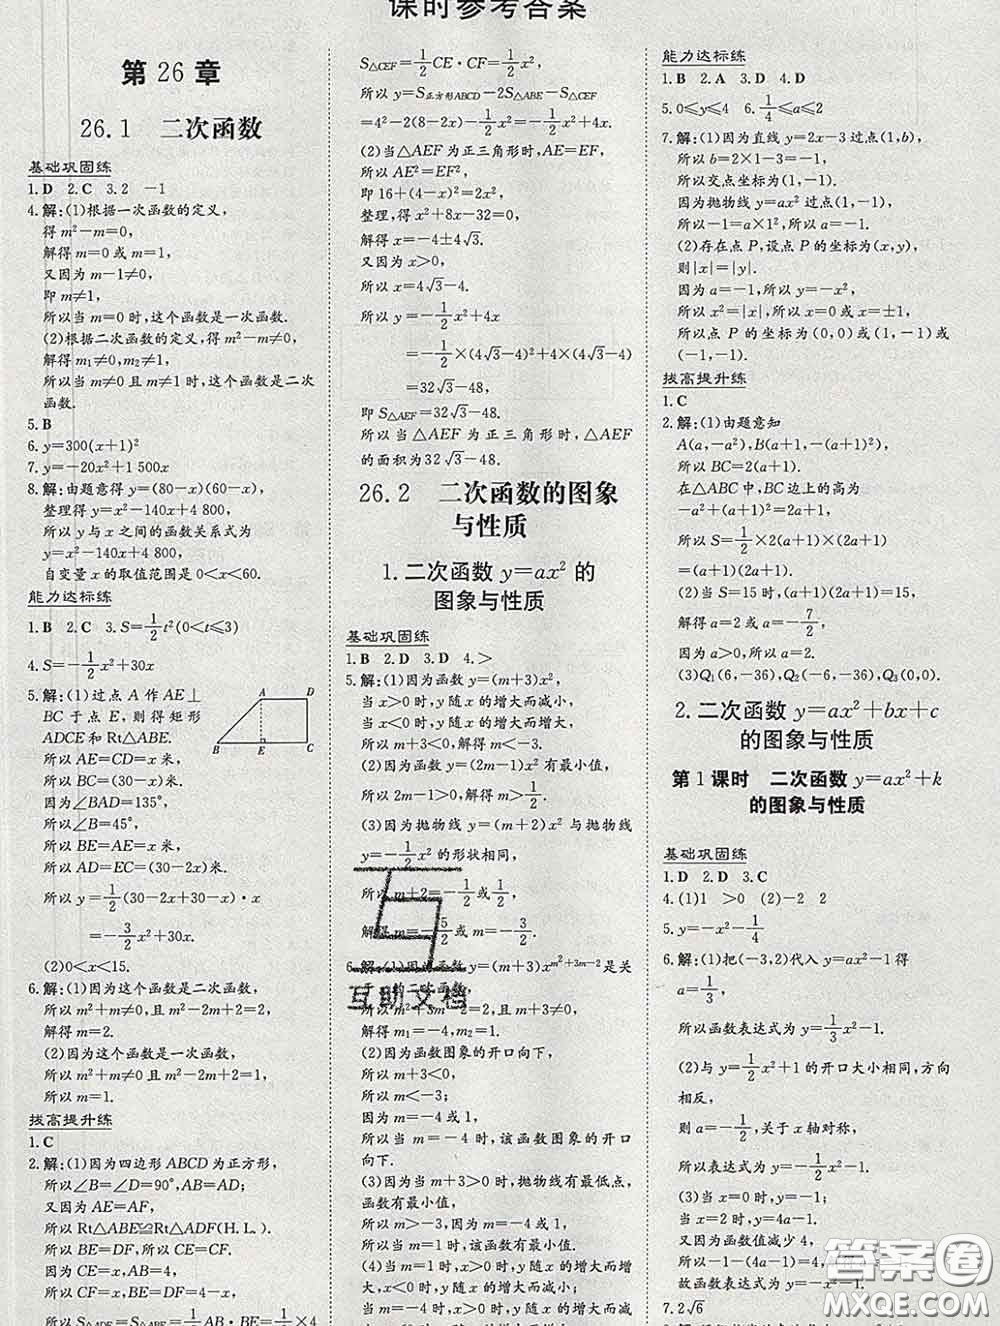 课时参考答案
第 26 章
26.1 二次函数
基础巩固练
1.D 2.C 3.2 －1
4.解:(1)根据一次函数的定义，
得 m²－m＝0，
解得 m＝0 或 m＝1.
又因为 m－1≠0，
即 m≠1，
所以当 m＝0 时，这个函数是一次函数.
(2)根据二次函数的定义，得 m²－m≠0，
解得 m₁≠0，m₂≠1，
所以当 m≠0 且 m≠1 时，这个函数是二次
函数.
5.B
6.y＝300(x＋1)²
7.y＝－20x²＋1 500x
8.解:由题意得 y＝(80－x)(60－x)，
整理得 y＝x²－140x＋4 800，
所以 y 与 x 之间的函数关系式为
y＝x²－140x＋4 800，
自变量 x 的取值范围是 0＜x＜60.
能力达标练
1.B 2.C 3.S＝1/2 t²(0＜t≤3)
4.S＝－1/2 x²＋30x
5.解:(1)过点 A 作 AE⊥
BC 于点 E，则得矩形
ADCE 和 Rt△ABE.
A D
B E C
所以 AE＝CD＝x 米，
所以 BC＝(30－x)米.
因为∠BAD＝135°，
所以∠B＝45°，
所以 BE＝AE＝x 米，
所以 AD＝EC＝(30－2x)米，
所以 y＝1/2(30－2x＋30－x)·x
＝－3/2 x²＋30x.
(2)0＜x＜15.
6.解:(1)因为这个函数是二次函数，
所以 m²＋m≠0，且 m²－2m＋2＝2，
解得 m＝2.
(2)因为这个函数是一次函数，
所以 m²＋m≠0，且 m²－2m＋2＝1，
所以 m＝1.
拔高提升练
1.C
2.解:(1)因为四边形 ABCD 为正方形，
所以∠B＝∠D＝90°，AB＝AD；
又因为 AE＝AF，
所以 Rt△ABE≌Rt△ADF(H.L.)，
所以 BE＝DF，所以 CE＝CF.
因为 CE＝x，AB＝4，
所以 CF＝CE＝x，BE＝DF＝4－x，
S△CEF＝1/2 CE·CF＝1/2 x²，
所以 y＝S正方形ABCD－2S△ABE－S△CEF
＝4²－2(8－2x)－1/2 x²＝－1/2 x²＋4x.
(2)当△AEF 为正三角形时，AE＝EF，
所以 AE²＝EF²，
即 16＋(4－x)²＝2x²，
整理，得 x²＋8x－32＝0，
解得 x＝－4±4√3.
又因为 x＞0，
所以 x＝4√3－4.
所以 y＝－1/2 x²＋4x
＝－1/2×(4√3－4)²＋4×(4√3－4)
＝32√3－48，
即 S△AEF＝32√3－48.
所以当△AEF 为正三角形时，△AEF
的面积为 32√3－48.
26.2 二次函数的图象
与性质
1.二次函数 y＝ax² 的
图象与性质
基础巩固练
1.B 2.D 3.D 4.＞
5.解:(1)因为函数 y＝(m＋3)x²，
当 x＞0 时，y 随 x 的增大而减小，
当 x＜0 时，y 随 x 的增大而增大，
所以 m＋3＜0，解得 m＜－3.
(2)因为函数 y＝(2m－1)x² 有最小值，
所以 2m－1＞0，解得 m＞1/2.
(3)因为抛物线 y＝(m＋2)x² 与抛物线
y＝－1/2 x² 的形状相同，
所以 m＋2＝－1/2 或 1/2，
解得 m＝－5/2 或 m＝－3/2.
6.解:(1)因为函数 y＝(m＋3)x^(m²＋3m－2) 是关
的二次函数，
所以 m²＋3m－2＝2，m＋3≠0，
解得 m₁＝－4，m₂＝1.
(2)因为函数图象的开口向下，
所以 m＋3＜0，
所以 m＜－3；
因为 m＝－4 或 1，
所以当 m＝－4 时，该函数图象的开口
向下.
(3)因为当 m＋3＞0 时，抛物线有最低点，
函数有最小值，
所以 m＞－3，又因为 m＝－4 或 1，
所以当 m＝1 时，该函数有最小值.
互助文档
能力达标练
1.B 2.A 3.D 4.D
5.0≤y≤4 6.1/4≤a≤2
7.解:(1)因为直线 y＝2x－3 过点(1，b)，
所以 b＝2×1－3＝－1，
所以交点坐标为(1，－1).
因为抛物线 y＝ax² 过点(1，－1)，
所以－1＝a×1²，所以 a＝－1.
(2)存在点 P，设点 P 的坐标为(x，y)，
则|x|＝|y|.
因为 a＝－1，所以 y＝－x²，
所以 x²＝|x|，所以 x＝0 或 x＝±1，
所以点 P 的坐标为(0，0)或(1，－1)或
(－1，－1).
拔高提升练
1.C
2.解:(1)由题意知
A(a，－a²)，B(a＋1，－(a＋1)²)，
所以 BC＝2(a＋1).
在△ABC 中，BC 边上的高为
－a²＋(a＋1)²＝2a＋1，
所以 S＝1/2×2(a＋1)×(2a＋1)
＝(a＋1)(2a＋1).
(2)当 S＝15 时，(a＋1)(2a＋1)＝15，
解得 a＝2 或 a＝－7/2，
因为 a＞0，所以 a＝2.
(3)Q₁(6，－36)，Q₂(－6，－36)，Q₃(0，0).
2.二次函数 y＝ax²＋bx＋c
的图象与性质
第 1 课时 二次函数 y＝ax²＋k
的图象与性质
基础巩固练
1.D 2.D 3.C
4.(1)1 ＞0 (2)－2 2
5.y＝－x²－1/4
6.解:(1)把(－3，2)代入 y＝ax²－1 得
a＝1/3，
所以函数表达式为 y＝1/3 x²－1.
(2)与 y＝1/2 x²＋1 的开口大小相同，方向
相反，
则 a＝－1/2，关于 x 轴对称，
所以表达式为 y＝－1/2 x²－1.
(3)当 x＝0 时，y＝－1；
当 x＝2 时，y＝4a－1.
又因为函数值减少 4，
7.2√6
答案圈
MXQE.COM